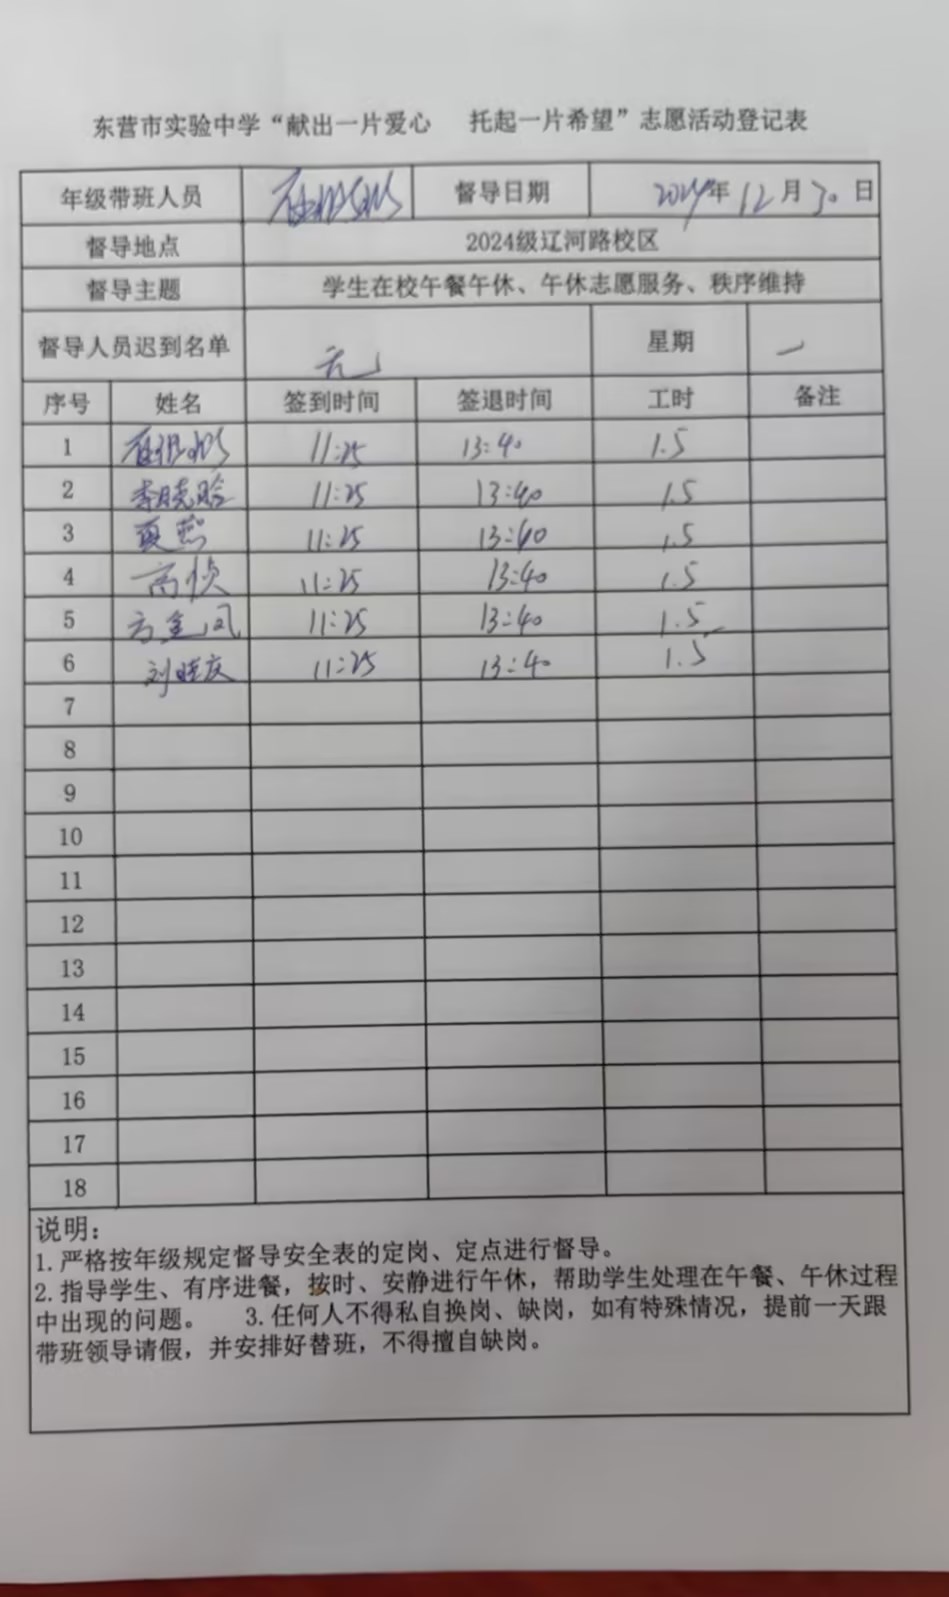 东营市实验中学“献出一片爱心 托起一片希望”志愿活动登记表
年级带班人员 督导日期 2024年12月30日
督导地点 2024级辽河路校区
督导主题 学生在校午餐午休、午休志愿服务、秩序维持
督导人员迟到名单 无 星期 一
序号 姓名 签到时间 签退时间 工时 备注
1 11:25 13:40 1.5
2 李晓晗 11:25 13:40 1.5
3 夏燕 11:25 13:40 1.5
4 高侦 11:25 13:40 1.5
5 方金凤 11:25 13:40 1.5
6 刘晓庆 11:25 13:40 1.5
7
8
9
10
11
12
13
14
15
16
17
18
说明：
1.严格按年级规定督导安全表的定岗、定点进行督导。
2.指导学生、有序进餐，按时、安静进行午休，帮助学生处理在午餐、午休过程
中出现的问题。 3.任何人不得私自换岗、缺岗，如有特殊情况，提前一天跟
带班领导请假，并安排好替班，不得擅自缺岗。